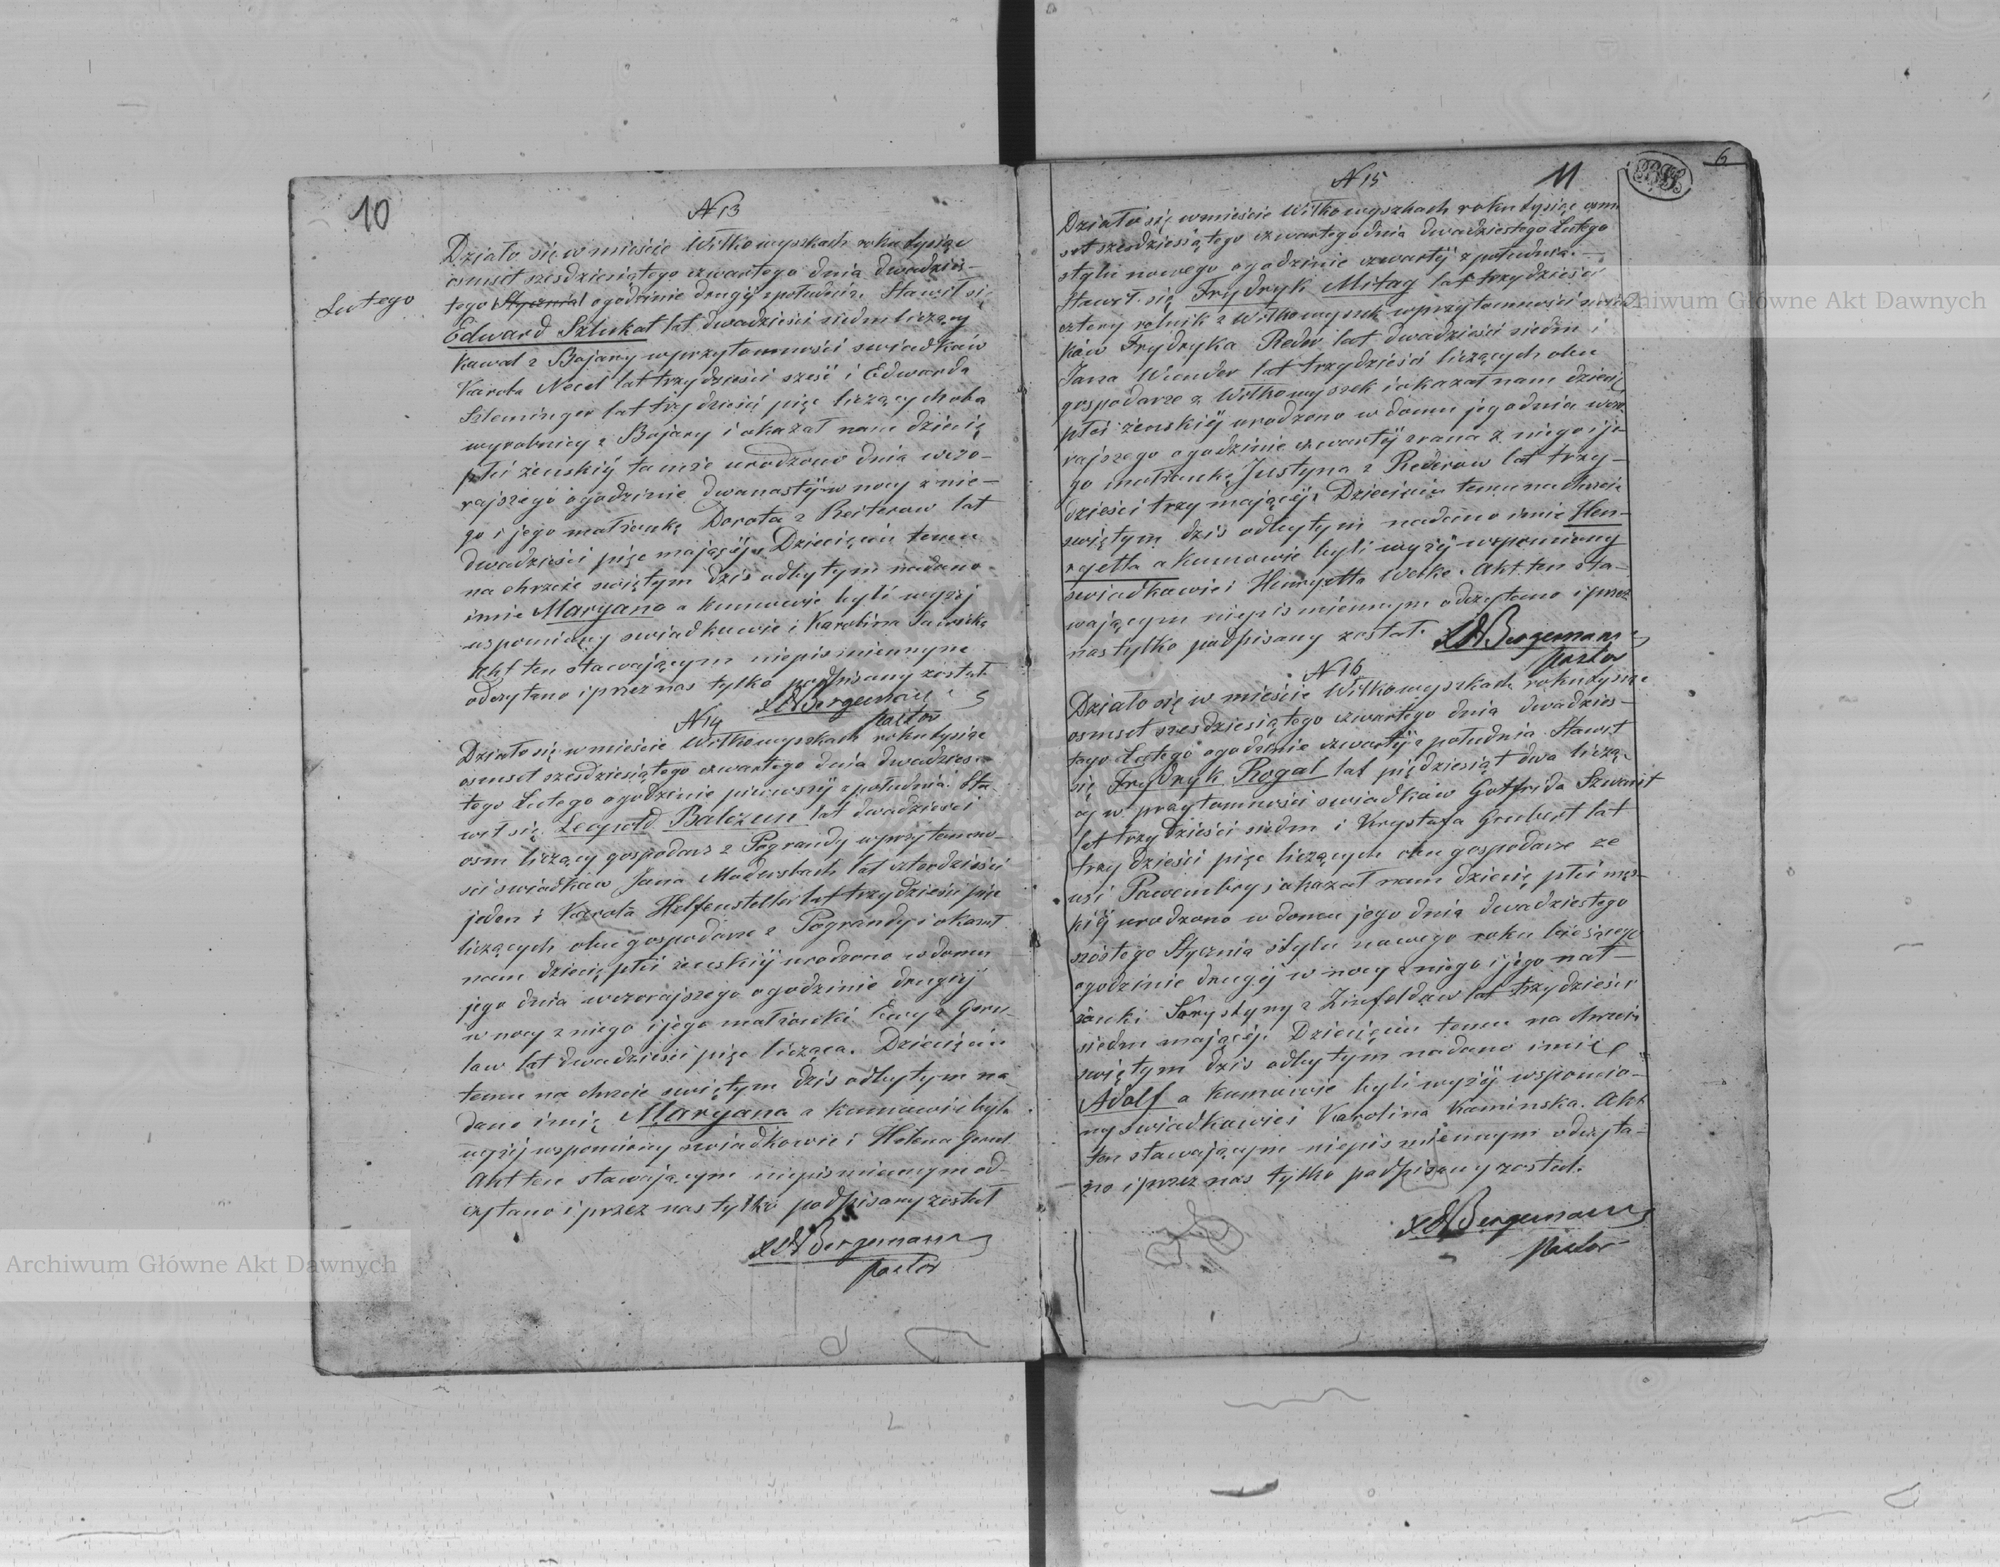 10
N 13
Działo się w mieście Wiłkowyszkach roku tysiąc
osmset szesdziesiątego czwartego dnia dwudzies-
Lutego
tego Stycznia ogodzinie drugiy społudnia. Stawił się
Edward Szlukat lat dwadzieści siedm liczący
Kawal z Bojary wprzytomności swiadków
Karola Necel lat trzydzieści sześć i Edwarda
Szleminger lat trzydzieści pięc liczących oba
wyrobnicy z Bojary i okazał nam dziecię
płci zenskiy tamże urodzono dnia wczo-
rajszego ogodzinie dwanastyi w nocy z nie-
go i jego małżonki Dorota z Reiterow lat
dwadzieści pięc mającyj. Dziecięciu temu
na chrzcie swiętym dzis odbytym nadano
imie Maryano a kumowie byli wyzyj
wspomiony swiadkowie i Karolina
Akt ten stawającym niepismiennym
odczytano i przez nas tylko podpisany został
XA Bergemann
pastor
N 14
Działo się w mieście Wiłkowyszkach roku tysiąc
osmset szesdziesiątego czwartego dnia dwudzies-
tego Lutego ogodzinie pierwszyj społudnia. Sta-
wił się Leopold Balczun lat dwadzieści
osm liczący gospodarz z Pograndy wprzytomno-
sci swiadków Jana Madusbach lat czterdzieści
jeden i Karola Helfensteller lat trzydzieści pięc
liczących obu gospodarze z Pograndy i okazał
nam dziecię płci zenskiy urodzono w domu
jego dnia wczorajszego ogodzinie drugiyj
w nocy z niego i jego małżonki Ewy z Geru-
law lat dwadzieści pięc licząca. Dziecięciu
temu na chrzcie swiętym dzis odbytym na
dano imię Maryana a kumowie była
wyzyj wspomiony swiadkowie i Helena Gerul
Akt ten stawającym niepismiennym od-
czytano i przez nas tylko podpisany został
XA Bergemann
pastor
6
11
N 15
Działo się w mieście Wiłkowyszkach roku tysiąc osm-
set szesdziesiątego czwartego dnia dwudziestego Lutego
stylu nowego ogodzinie czwartyj z południa.
Stawił się Frydryk Mitag lat trzydzieści
cztery rolnik z Wiłkowyszek wprzytomności swiad-
ków Frydryka Reder lat dwadzieści siedm i
Jana Wiender lat trzydzieści liczących obu
gospodarze z Wiłkowyszek i okazał nam dziecię
płci żenskiej urodzono w domu jego dnia wczo-
rajszego ogodzinie czwartyj zrana z niego i je-
go małżonki Justyna z Rederow lat trzy-
dzieści trzy mającyj. Dziecięciu temu na chrzcie
swiętym dzis odbytym nadano imie Hen-
ryetta a kumowie byli wyzyj wspomiony
swiadkowie i Henryetta Welke. Akt ten sta-
wającym niepismiennym odczytano i przez
nas tylko podpisany został. XA Bergemann
pastor
N 16
Działo się w mieście Wiłkowyszkach roku tysiąc
osmset szesdziesiątego czwartego dnia dwudzies-
tego Lutego ogodzinie czwartyj z południa. Stawił
się Frydryk Rogal lat pięćdziesiąt dwa liczą-
cy w przytomności swiadków Gotfrida Szwarit
lat trzydzieści siedm i Krystafa Grubert lat
trzydzieści pięc liczących obu gospodarze ze
wsi Pawembry i okazał nam dziecię płci męz-
kiej urodzono w domu jego dnia dwudziestego
szóstego Stycznia stylu nowego roku bieżącego
ogodzinie drugiej w nocy z niego i jego mał-
żonki Korystyny z Zinfeldow lat trzydzieści
siedm mającyj. Dziecięciu temu na chrzcie
swiętym dzis odbytym nadano imię
Adolf a kumowie byli wyzyj wspomio-
ny swiadkowie i Karolina Kaminska. Akt
ten stawającym niepismiennym odczyta-
no i przez nas tylko podpisany został.
XA Bergemann
pastor
Archiwum Główne Akt Dawnych
Archiwum Główne Akt Dawnych